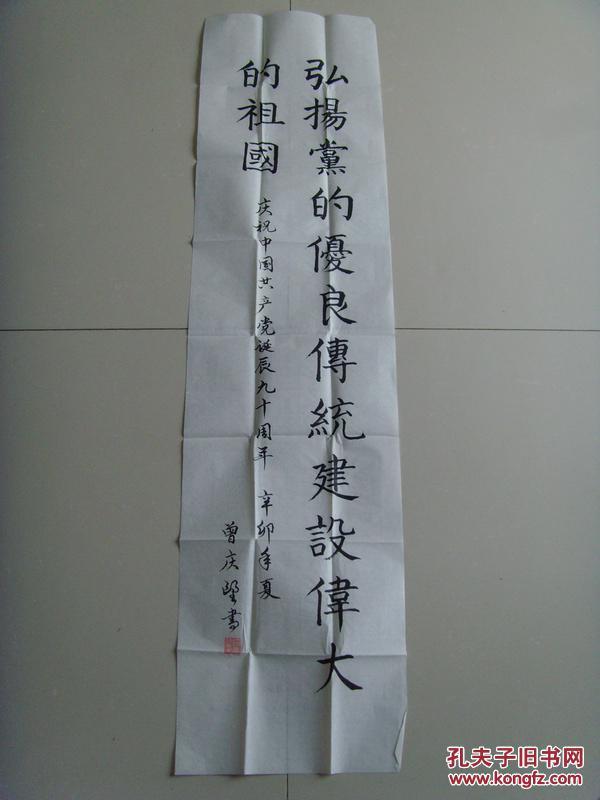 弘揚黨的優良傳統建設偉大
的祖國
庆祝中国共产党诞辰九十周年 辛卯年夏
曾庆壂書
孔夫子旧书网
www.kongfz.com